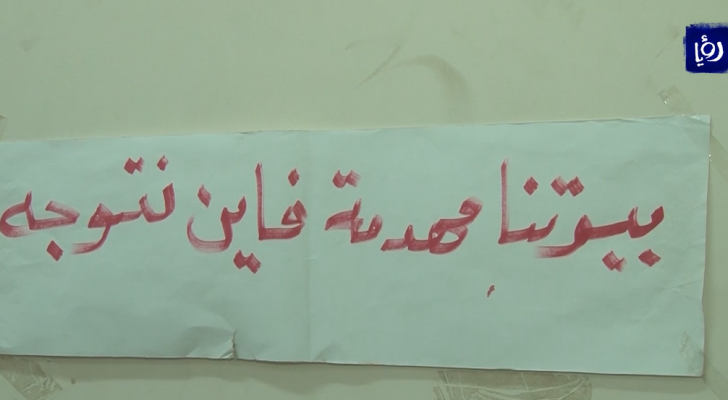 رؤيا
بيوتنا مهدمة فاين نتوجه